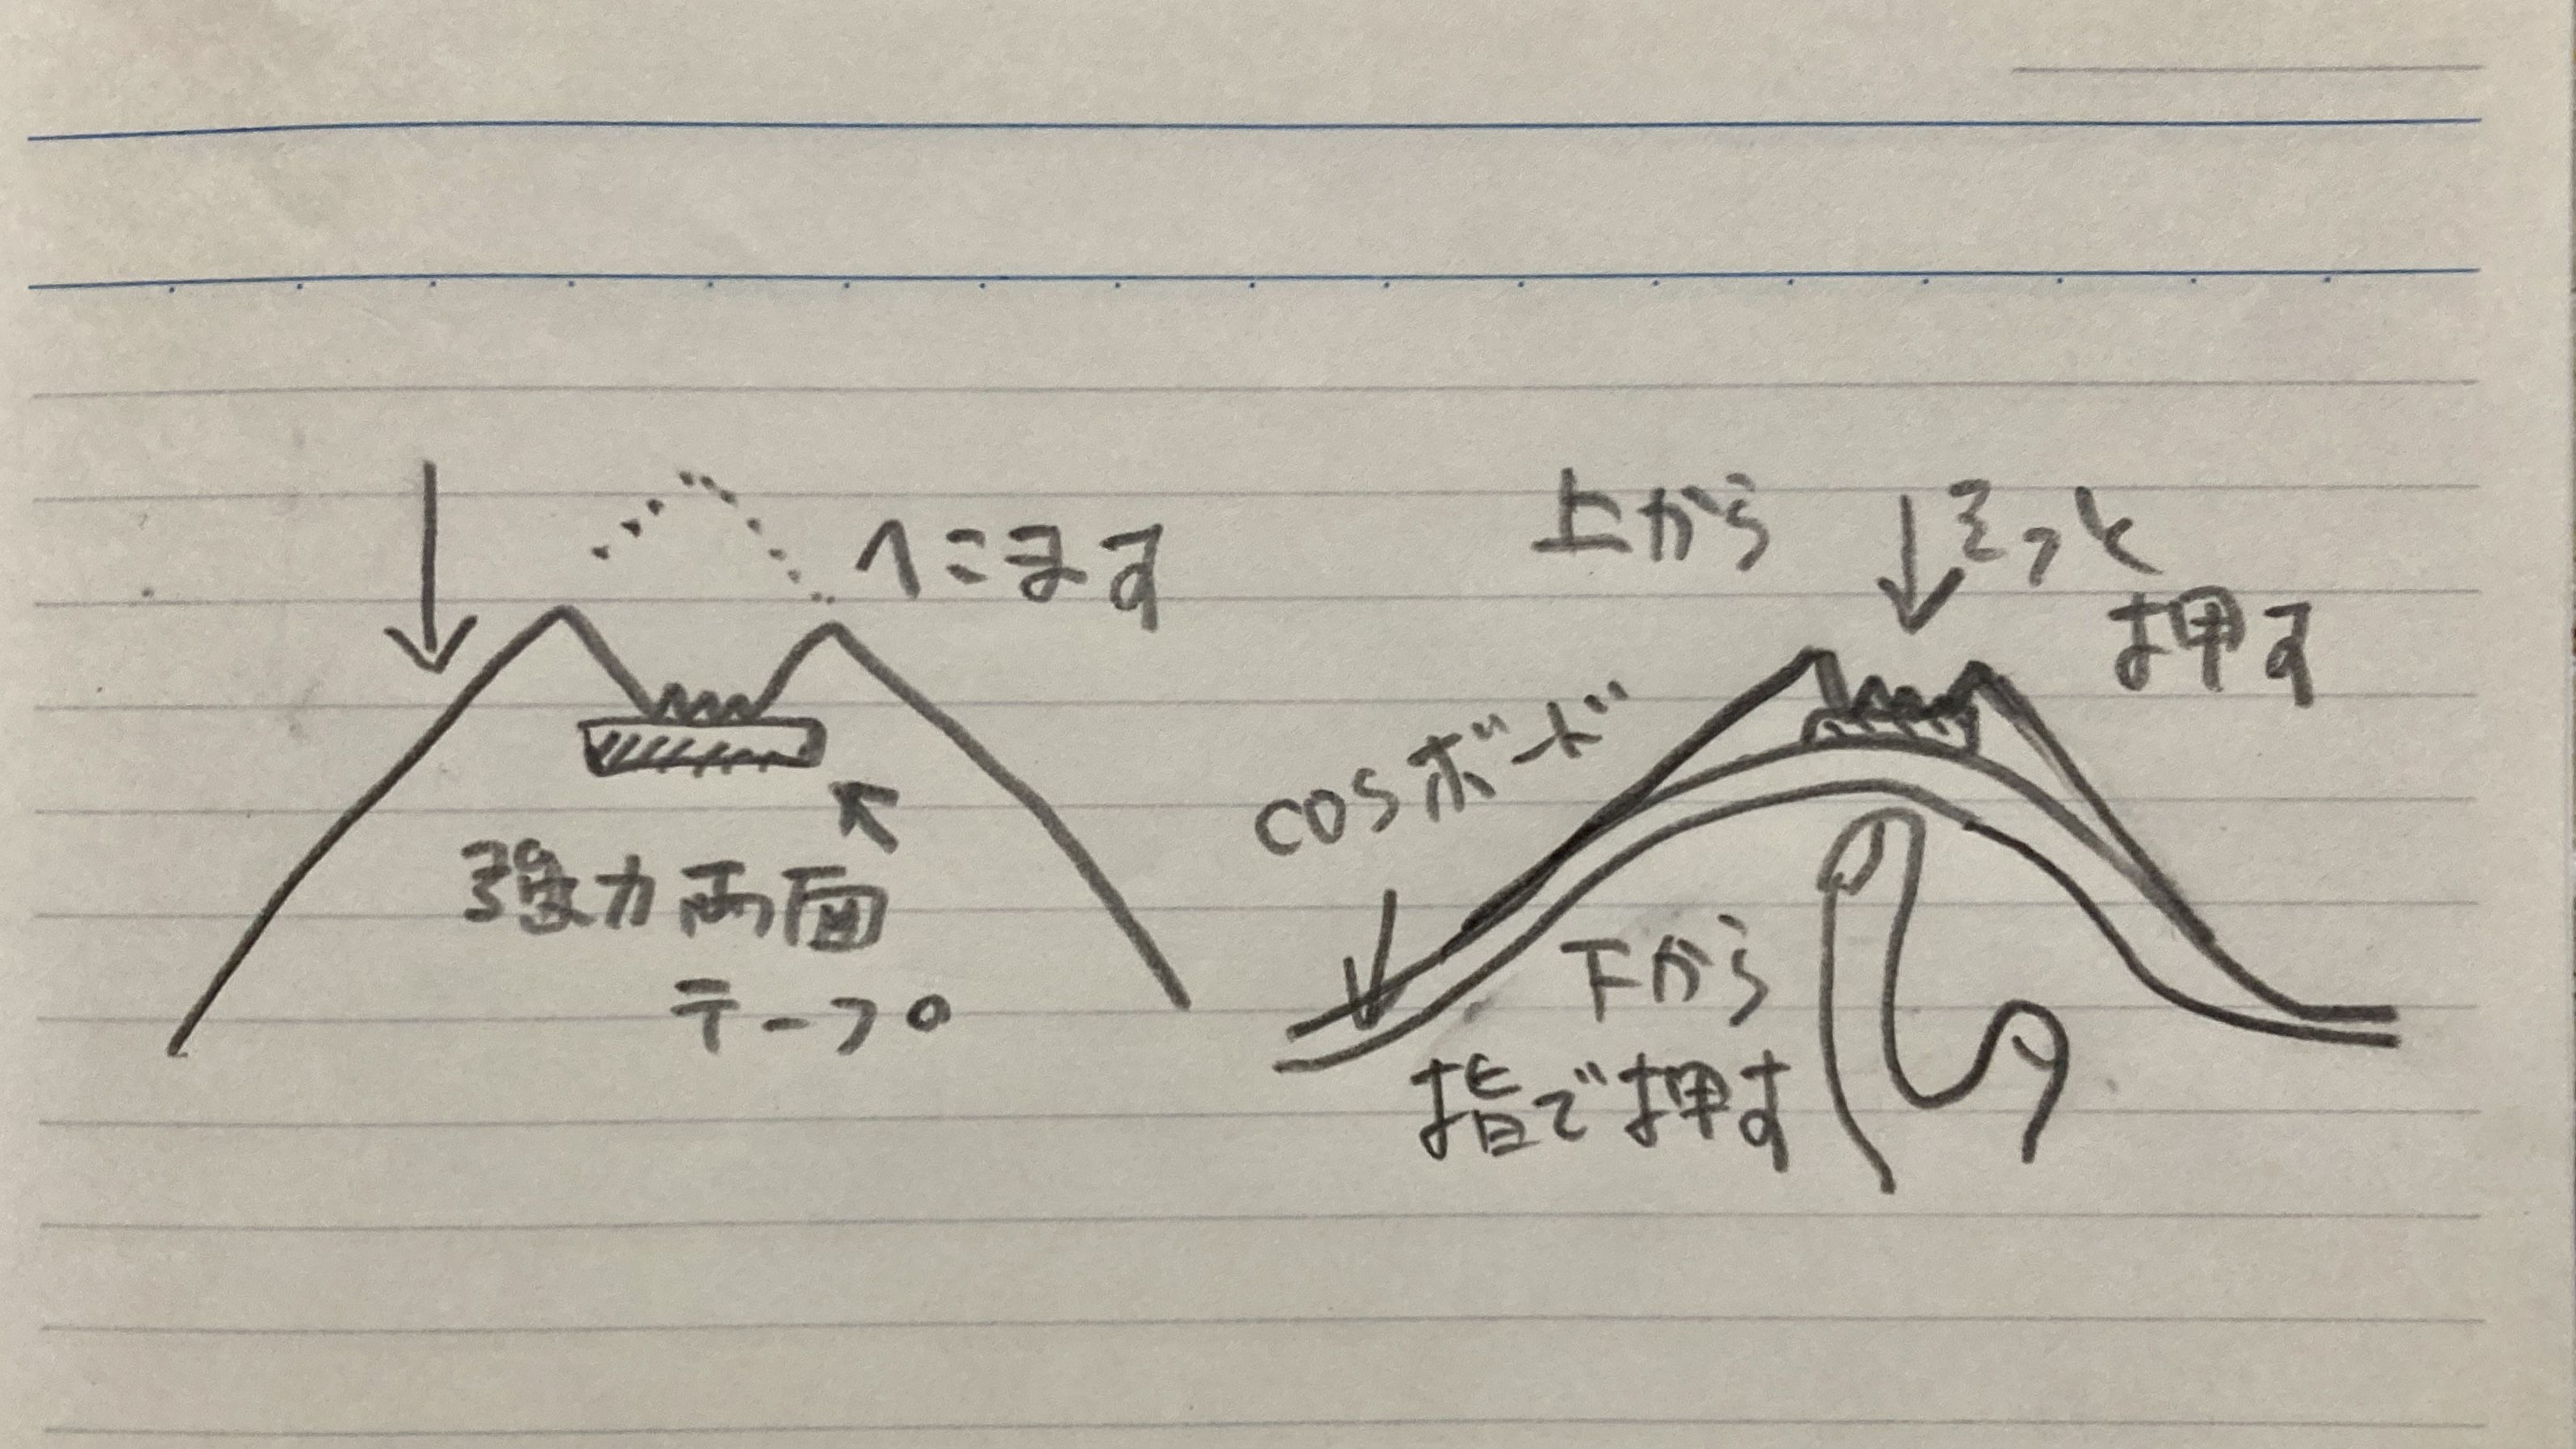 へこます
強力両面
テープ
上から
そっと
押す
cosボード
下から
指で押す